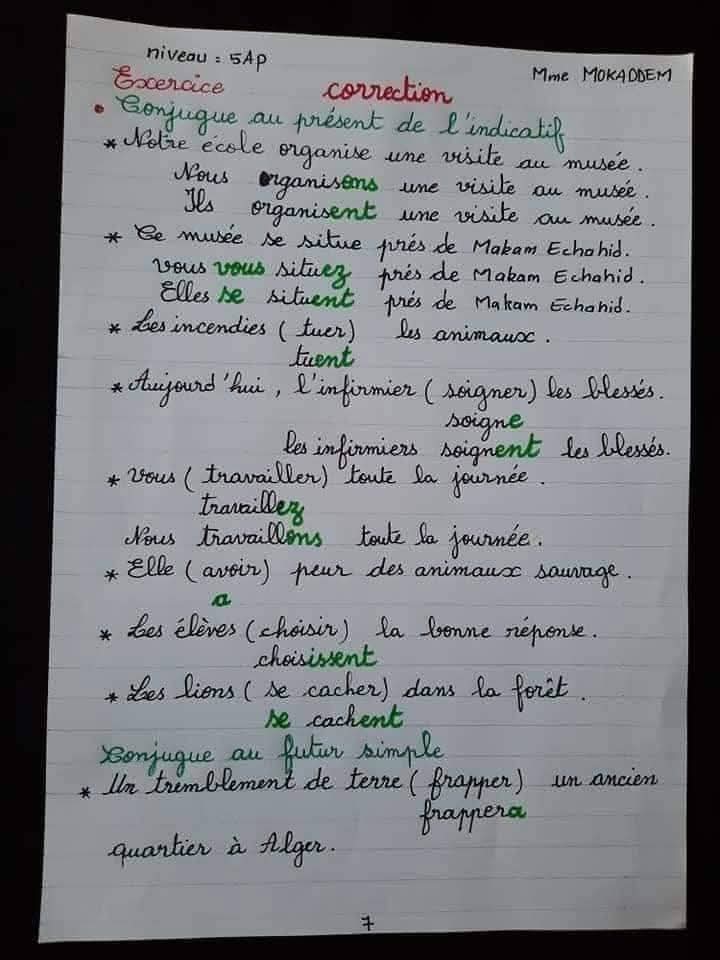 niveau : 5AP
Mme MOKADDEM
Exercice correction
• Conjugue au présent de l'indicatif
* Notre école organise une visite au musée.
Nous organisons une visite au musée.
Ils organisent une visite au musée.
* Ce musée se situe prés de Makam Echahid.
Vous vous situez prés de Makam Echahid.
Elles se situent prés de Makam Echahid.
* Les incendies ( tuer) les animaux.
tuent
* Aujourd'hui, l'infirmier ( soigner) les blessés.
soigne
les infirmiers soignent les blessés.
* Vous ( travailler) toute la journée.
travaillez
Nous travaillons toute la journée.
* Elle ( avoir) peur des animaux sauvage.
a
* Les élèves (choisir) la bonne réponse.
choisissent
* Les lions ( se cacher) dans la forêt.
se cachent
Conjugue au futur simple
* Un tremblement de terre ( frapper) un ancien
frappera
quartier à Alger.
7